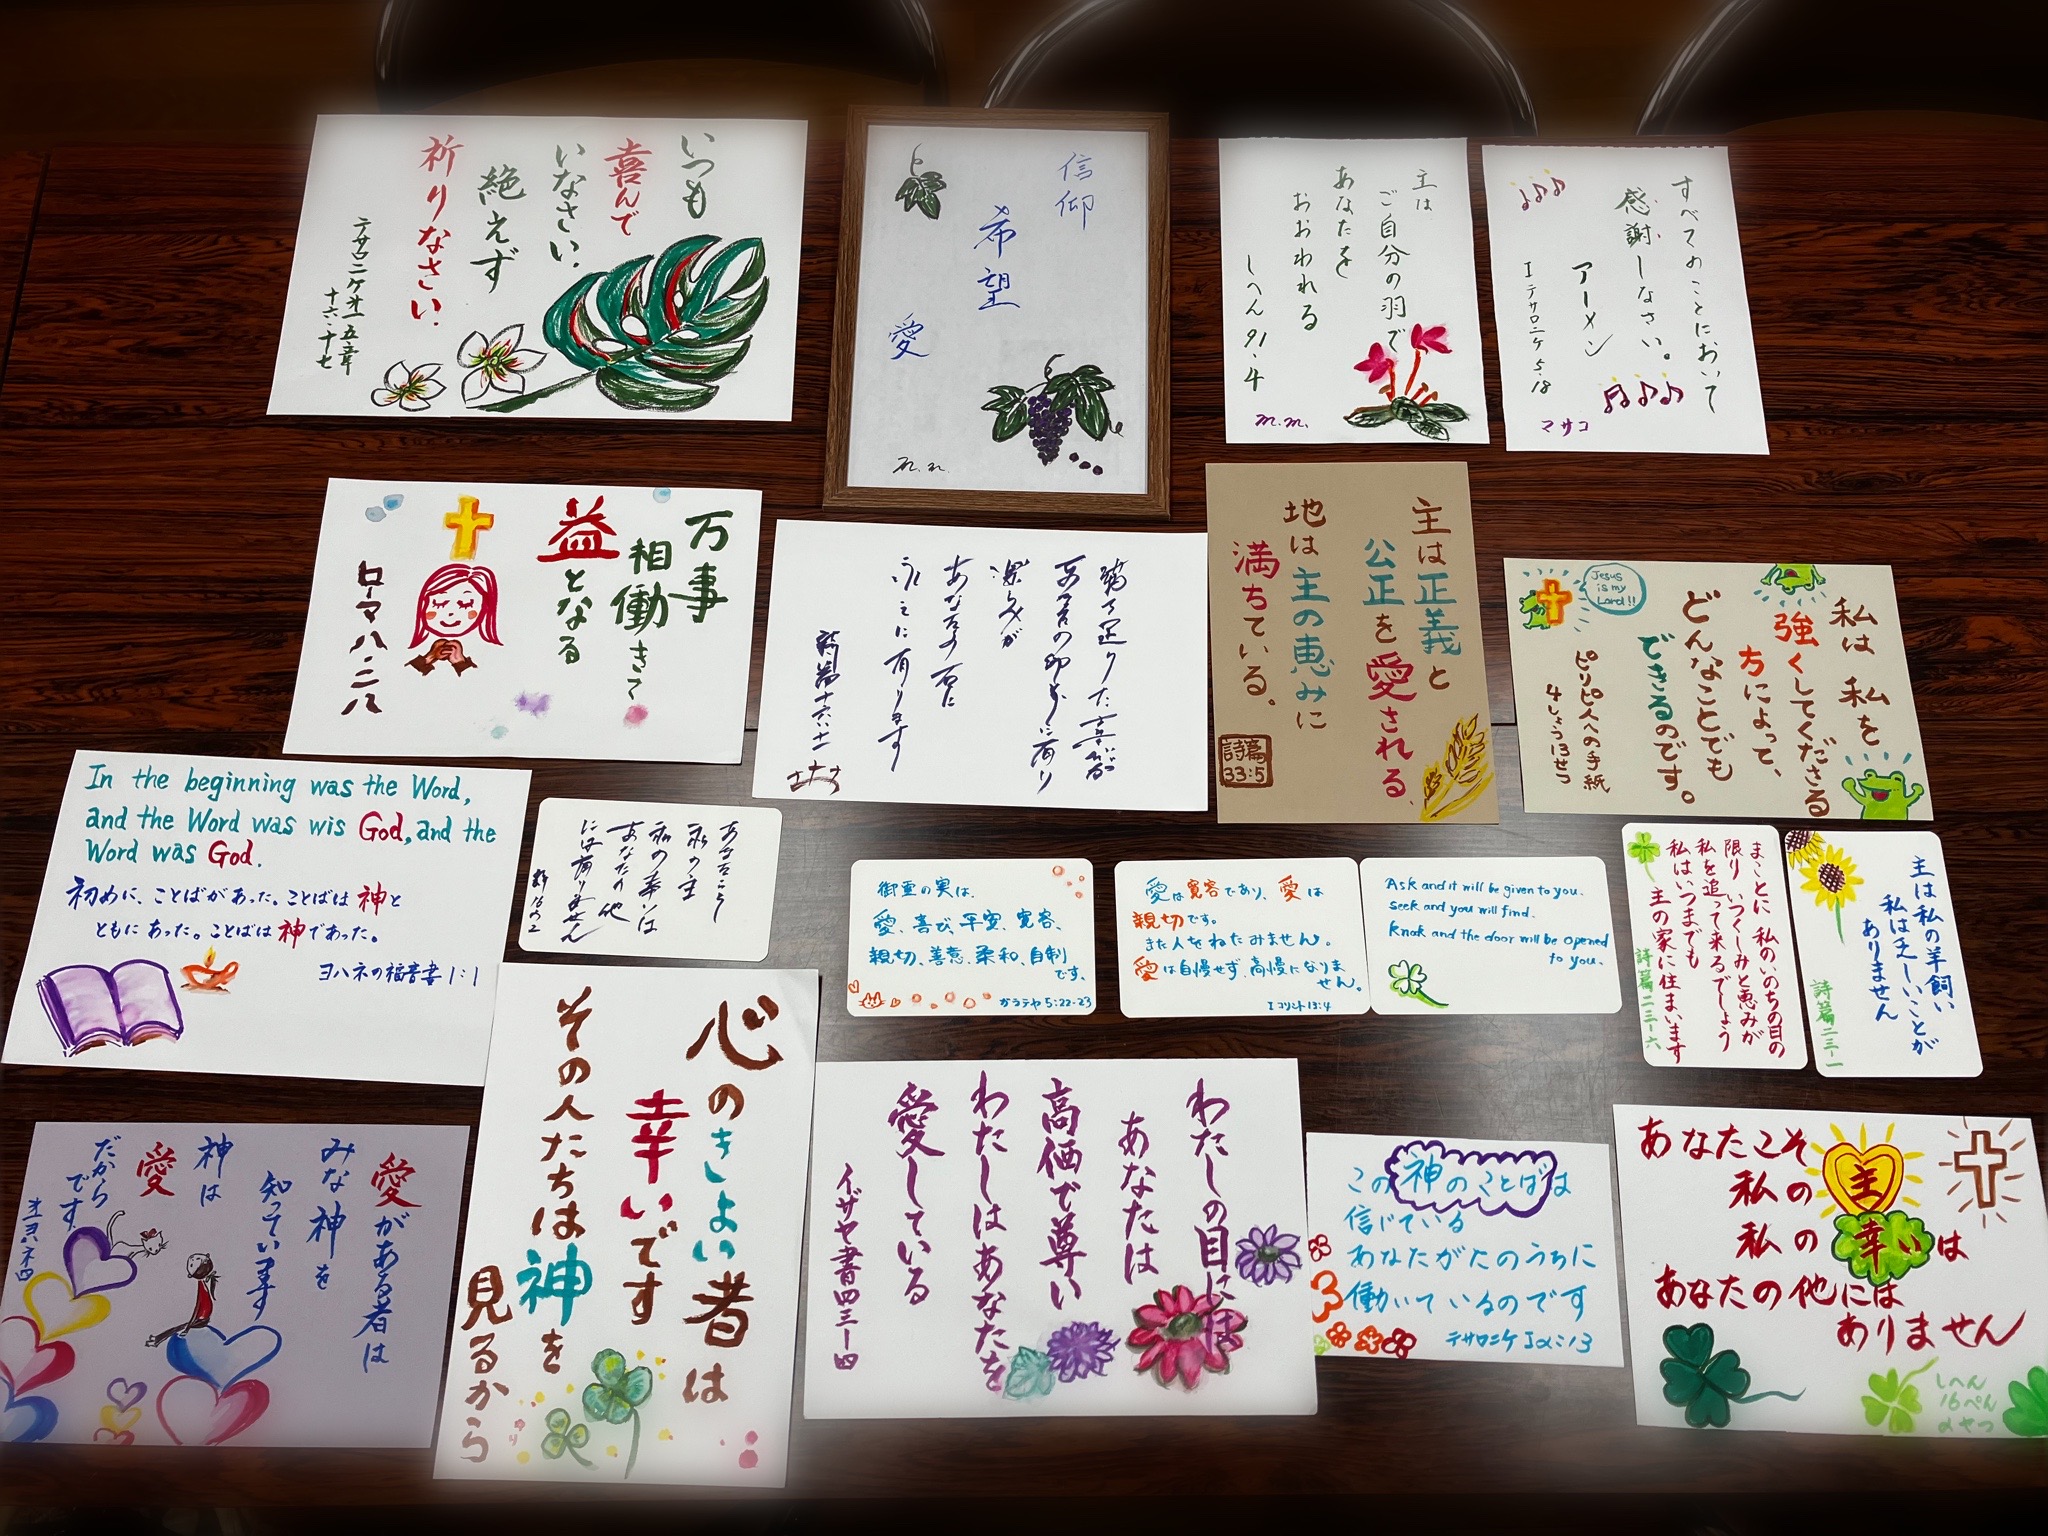 いつも
喜んで
いなさい.
絶えず
祈りなさい.
テサロニケオ一五章
十六.十七
信仰
希望
愛
m.m.
主は
ご自分の羽で
あなたを
おおわれる
しへん91.4
m.m.
すべてのことにおいて
感謝しなさい。
アーメン
Iテサロニケ5.18
マサコ
万事
相働きて
益となる
ローマ八.二八
満ち足りた喜びが
あなたの御前に有り
楽しみが
あなたの右に
永えに有ります
詩篇十六.十一
主は正義と
公正を愛される.
地は主の恵みに
満ちている。
詩篇
33:5
Jesus
is my
Lord!!
私は私を
強くしてくださる
方によって、
どんなことでも
できるのです。
ピリピ人への手紙
4しょう13せつ
In the beginning was the Word,
and the Word was wis God, and the
Word was God.
初めに、ことばがあった。ことばは神と
ともにあった。ことばは神であった。
ヨハネの福音書1:1
あなたこそ
私の主
私の幸いは
あなたの他
には有りません
詩16の2
御霊の実は、
愛、喜び、平安、寛容、
親切、善意、柔和、自制
です。
ガラテヤ5:22-23
愛は寛容であり、愛は
親切です。
また人をねたみません。
愛は自慢せず、高慢になりま
せん。
Iコリント13:4
Ask and it will be given to you.
seek and you will find.
knok and the door will be opened
to you.
まことに私のいのちの日の
限りいつくしみと恵みが
私を追って来るでしょう
私はいつまでも
主の家に住まいます
詩篇二三-六
主は私の羊飼い
私は乏しいことが
ありません
詩篇二三-一
愛がある者は
みな神を
知っています
神は
愛
だから
です.
オ一ヨハネ四
心のきよい者は
幸いです
その人たちは神を
見るから
わたしの目には
あなたは
高価で尊い
わたしはあなたを
愛している
イザヤ書四三-四
この神のことばは
信じている
あなたがたのうちに
働いているのです
テサロニケI2:13
あなたこそ
私の主
私の幸いは
あなたの他には
ありません
しへん
16ぺん
2せつ